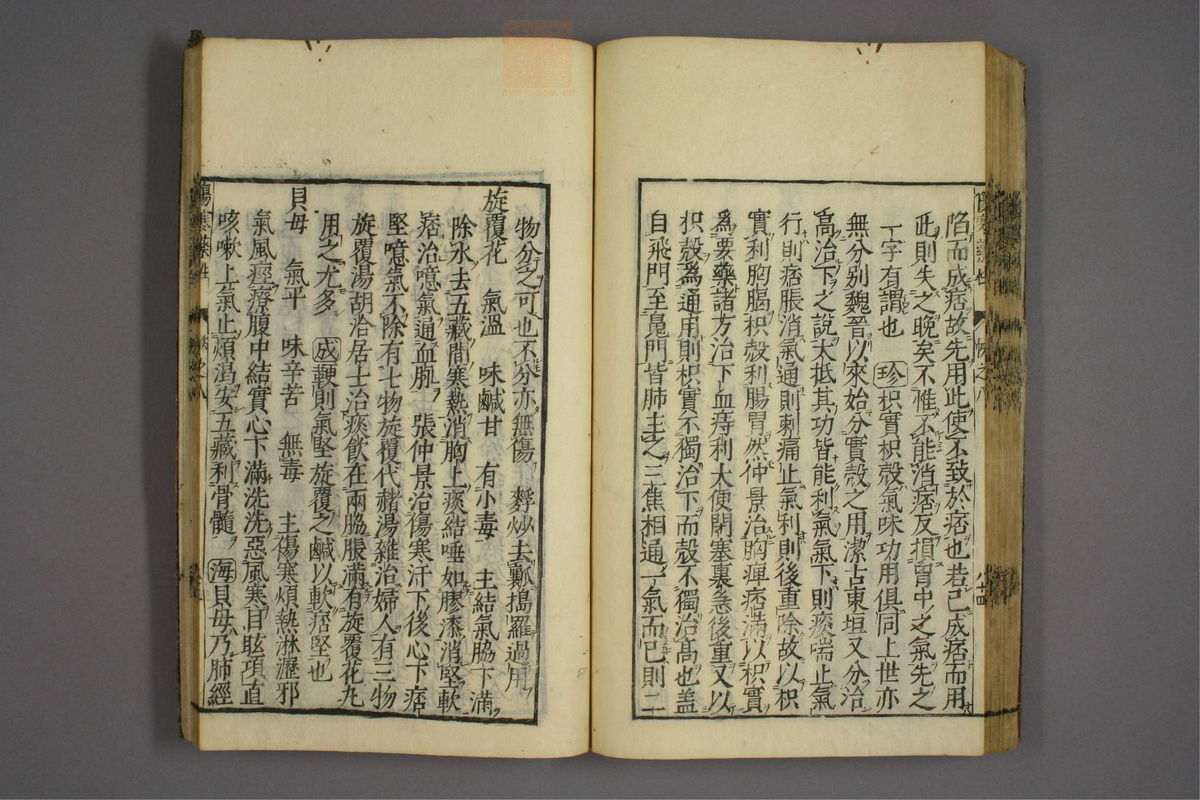 陷而成痞故先用此使不致於痞也若已成痞而用
此則失之晚矣不惟不能消痞反損胷中之氣先之
一字有謂也 珍枳實枳殼氣味功用俱同上世亦
無分別魏晉以來始分實殼之用潔古東垣又分治
高治下之說大抵其功皆能利氣氣下則痰喘止氣
行則痞脹消氣通則刺痛止氣利則後重除故以枳
實利胸膈枳殼利腸胃然仲景治胸痺痞滿以枳實
爲要藥諸方治下血痔利大便閉塞裏急後重又以
枳殼爲通用則枳實不獨治下而殼不獨治高也蓋
自飛門至魄門皆肺主之三焦相通一氣而已則二
傷寒藥性
物分之可也不分亦無傷 麩炒去瓤搗羅過用
旋覆花 氣溫 味鹹甘 有小毒 主結氣脇下滿
除水去五藏間寒熱消胸上痰結唾如膠漆消堅軟
痞治噫氣通血脈 張仲景治傷寒汗下後心下痞
堅噫氣不除有七物旋覆代赭湯雜治婦人有三物
旋覆湯胡洽居士治痰飲在兩脇脹滿有旋覆花丸
用之尤多 成鞕則氣堅旋覆之鹹以軟痞堅也
貝母 氣平 味辛苦 無毒 主傷寒煩熱淋瀝邪
氣風痙療腹中結實心下滿洗洗惡風寒目眩項直
咳嗽上氣止煩渴安五藏利骨髓 海貝母乃肺經
傷寒藥性